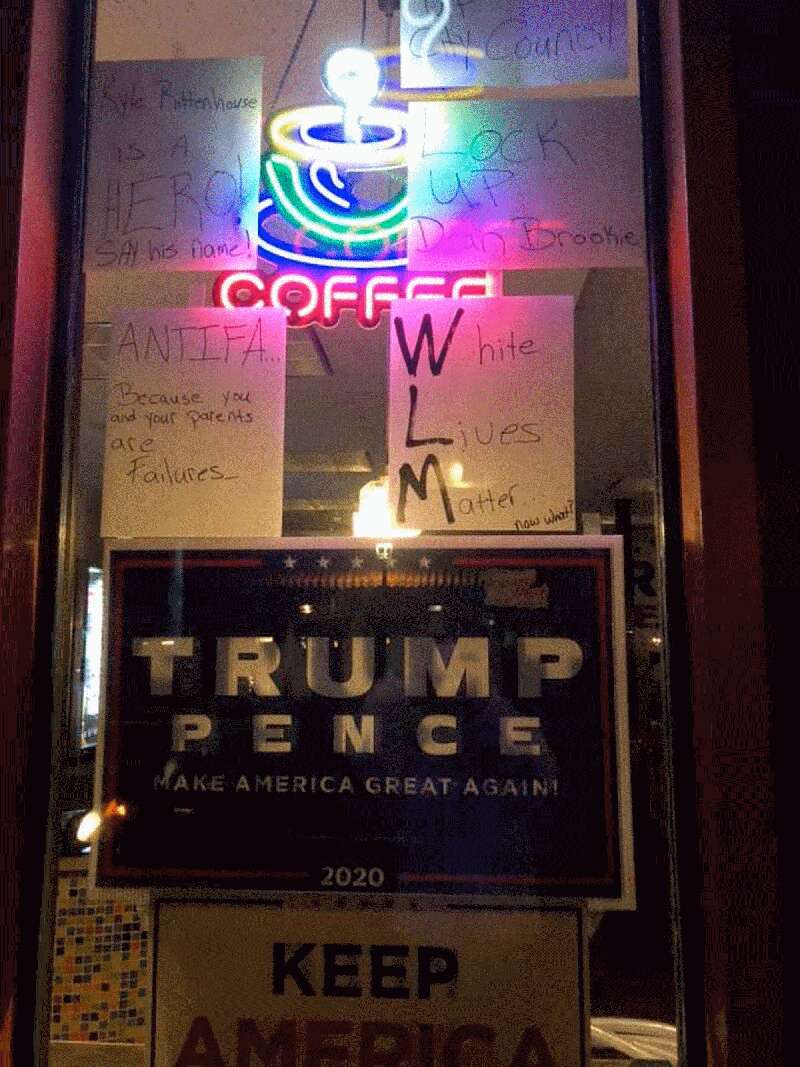 City Council
Kyle Rittenhouse
is A
HERO!
SAY his name!
LOCK
UP
Dean Brookie
COFFEE
ANTIFA...
Because you
and your parents
are
Failures_
White
Lives
Matter...
now what?
TRUMP
PENCE
MAKE AMERICA GREAT AGAIN!
2020
KEEP
AMERICA